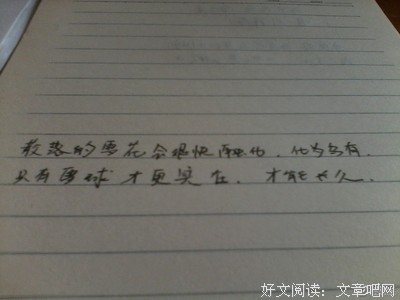 散落的雪花会很快融化，化为乌有．
只有雪球才更实在．才能长久．
好文阅读：文章吧网